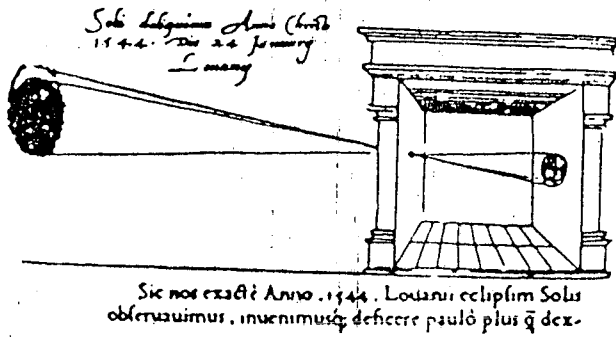 Solis deliquium Anno Christi
1544. Die 24 Januarij
Louanij
Sic nos exactè Anno .1544. Louanii eclipsim Solis
obseruauimus, inuenimusq; deficere paulò plus q̄ dex-